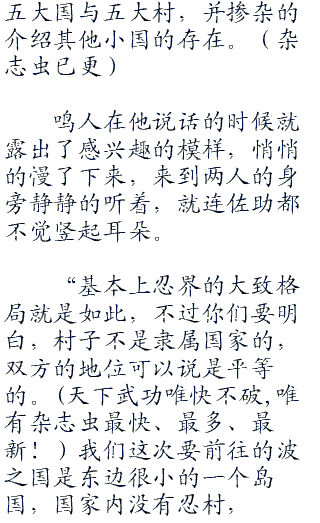 五大国与五大村，并掺杂的
介绍其他小国的存在。（杂
志虫已更）
鸣人在他说话的时候就
露出了感兴趣的模样，悄悄
的慢了下来，来到两人的身
旁静静的听着，就连佐助都
不觉竖起耳朵。
“基本上忍界的大致格
局就是如此，不过你们要明
白，村子不是隶属国家的，
双方的地位可以说是平等
的。(天下武功唯快不破,唯
有杂志虫最快、最多、最
新！）我们这次要前往的波
之国是东边很小的一个岛
国，国家内没有忍村，